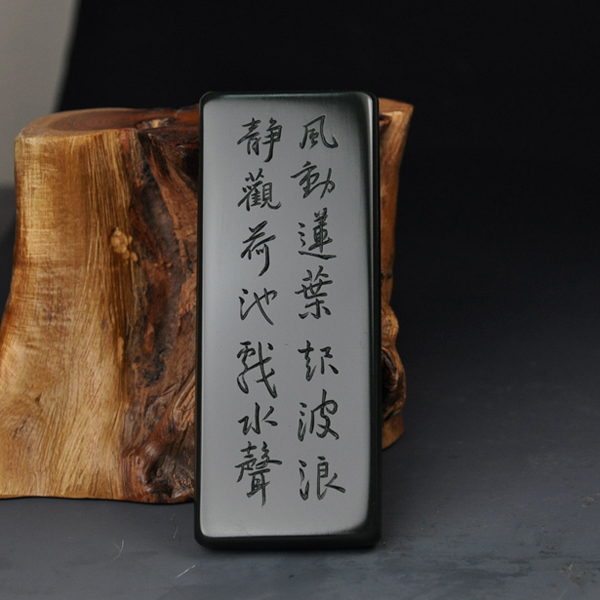 風動蓮葉起波浪
静觀荷池戲水聲